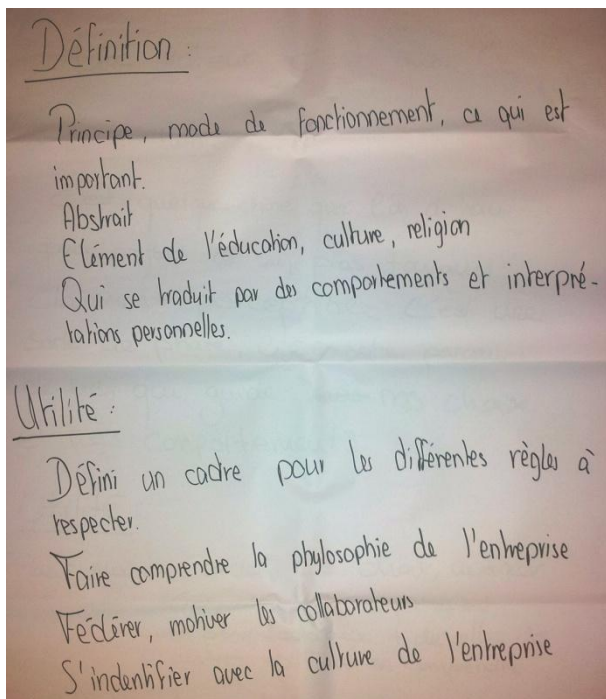 Définition :
Principe, mode de fonctionnement, ce qui est
important.
Abstrait
Elément de l'éducation, culture, religion
Qui se traduit par des comportements et interpré-
tations personnelles.
Utilité :
Défini un cadre pour les différentes règles à
respecter.
Faire comprendre la phylosophie de l'entreprise
Fédérer, motiver les collaborateurs
S'indentifier avec la culture de l'entreprise